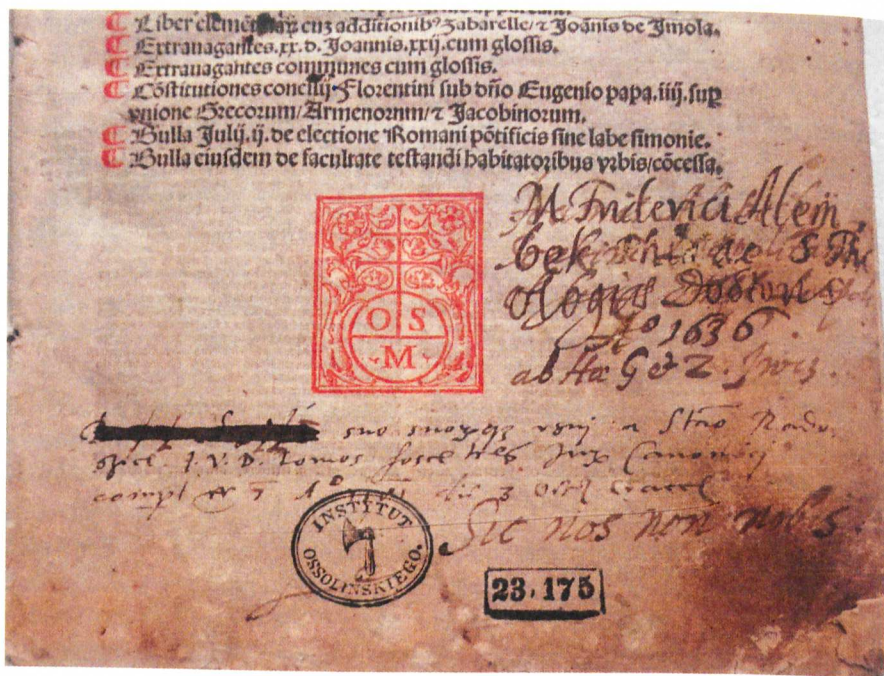 Liber elemētinaꝝ cuꝫ additionibꝰ Zabarelle/⁊ Joānis de Jmola.
Extrauagantes.xx.d.Joannis.xxij.cum glossis.
Extrauagantes communes cum glossis.
Cōstitutiones concilij Florentini sub dño Eugenio papa.iiij.sup
vnione Grecorum/Armenorum/⁊ Jacobinorum.
Bulla Julij.ij.de electione Romani pōtificis sine labe simonie.
Bulla eiusdem de facultate testandi habitatoribus vrbis/cōcessa.
M Friderici Alem
bek
S The
ologiæ Doctoris
Aº 1636
ab Hæ G et Z.
O S
M
suo suoꝝqꝫ vsuj a Stāo Rado
J. V. D. Tomos hosce tres Jux Canonicj
3 Octꝭ
Sic nos non nobis.
INSTYTUT
OSSOLIŃSKIEGO.
23.175